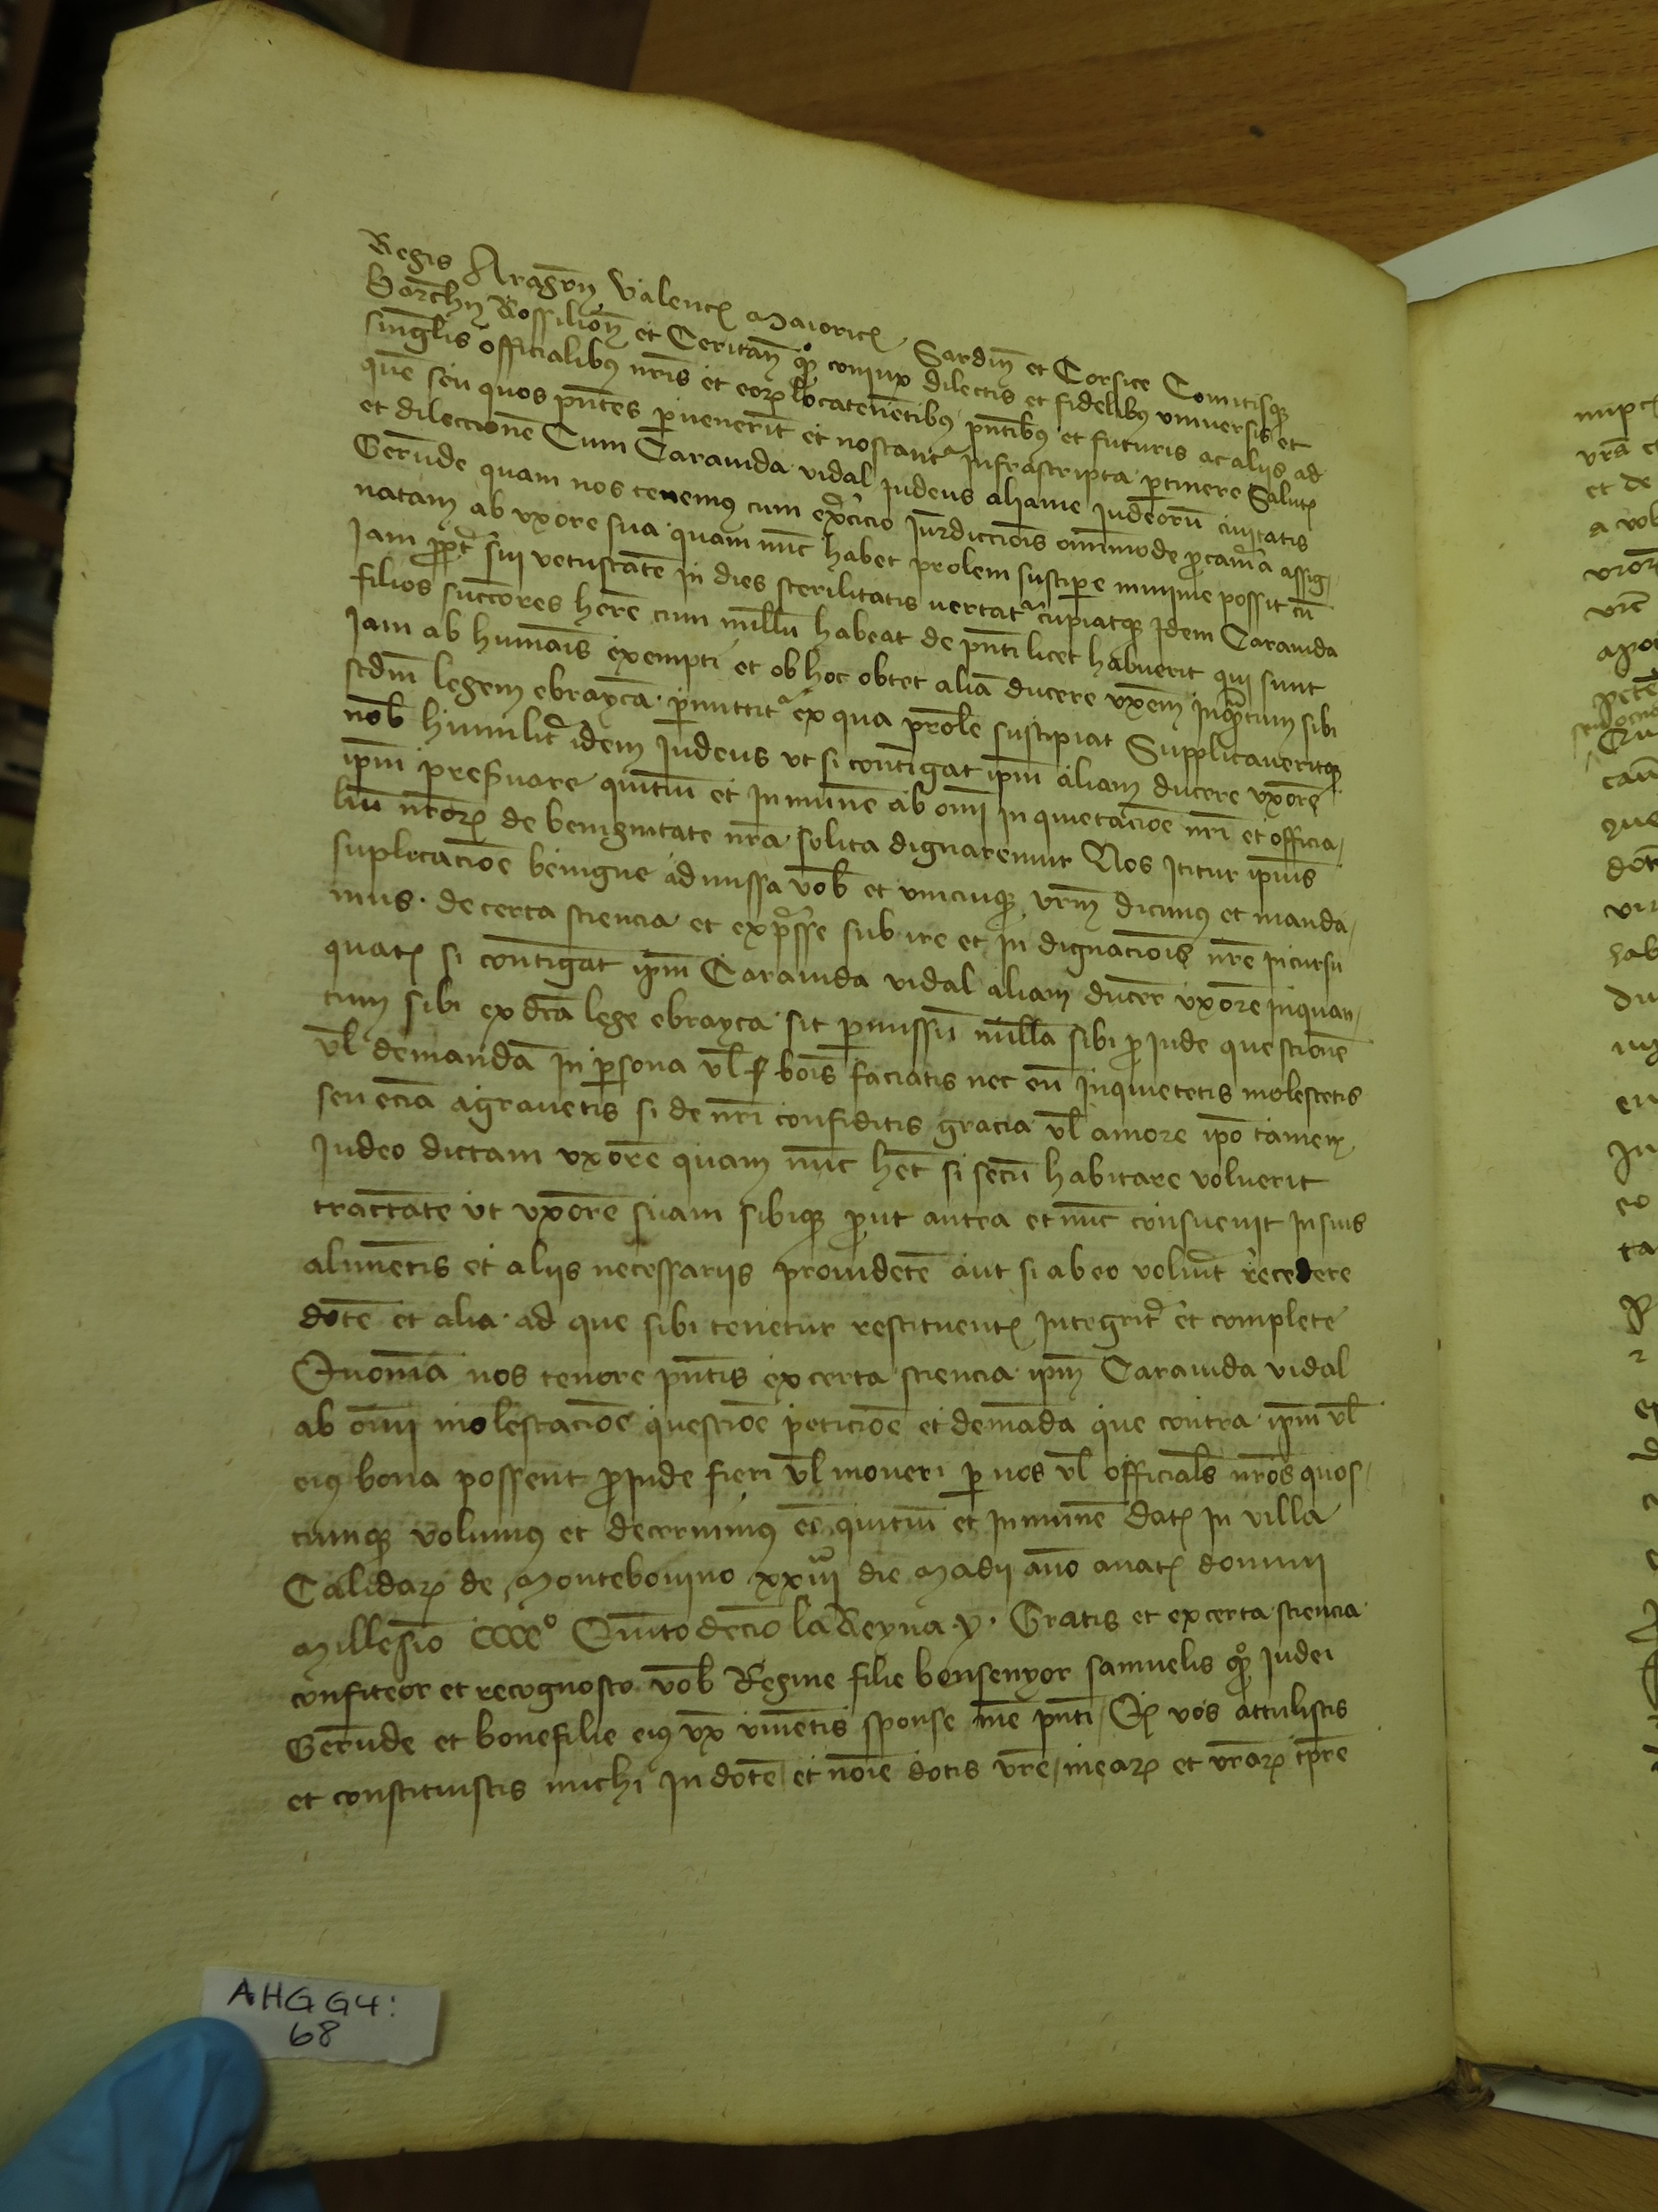 Regis Aragon̄ Valenc̄ Maioric̄ Sardin̄ et Corsice Comitisq̄
Barch̄n Rossilion̄ et Ceritan̄ q̊ conjux dilectis et fidelibus universis et
singl̄is officialibus nr̄is et eor̄ locatenētibus pn̄tibus et futuris ac aliis ad
quē seu quos pn̄tes pervenerīt et noscantr infrascripta pertinere Salut̄
et dileccionē Cum Caravida vidal judeus aljame judeorū civitatis
Gerūde quam nos tenemus cum exercicio Jurdiccīois omnimode pro camera assig
natam ab uxore sua quam nūc habet prolem suscipere minime possit cū
jam propt̄ sui vetustatē in dies sterilitatis vertatr cupiatq̄ idem Caravida
filios succ̄ores her̄e cum nullū habeat de pn̄ti licet habuerit qui sunt
jam ab humāis exempti et ob hoc obtet aliā ducere ux̄em inq̄ntum sibi
scdm̄ legem ebraycā permittitr ex qua prolē suscipiat Supplicaveritq̄
nob̄ humilit̄ idem judeus ut si contingat ip̄m aliam ducere uxorē
ip̄m preservare quitiū et inmunē ab om̄i inquietacīoe nr̄i et officia
liū nr̄or̄ de benignitate nr̄a solita dignaremur Nos Igitur ip̄ius
suplicacīoe benigne admissa vob̄ et unicuiq̄ vr̄m dicimus et manda
mus de certa sciencia et exp̄sse sub ire et indignacīois nr̄e incursu
quat̄ si contingat ip̄m Caravida vidal aliam ducer̄ uxorē inquan
tum sibi ex dc̄a lege ebrayca sit permissū nullā sibi proinde questionē
vl̄ demandā in persona vl̄ bōis faciatis nec eū inquietetis molestetis
seu eciā agravetis si de nr̄i confiditis gracia vl̄ amore ip̄o tamen
judeo dictam uxorē quam nūc hēt si secū habitare voluerit
tractāte ut uxorē suam sibiq̄ prout antea et nūc consuevit in suis
alimētis et aliis necessariis providētē aut si ab eo voluīt recedere
dotē et alia ad que sibi tenetur restituent̄ integrit̄ et complete
Quoniā nos tenore pn̄tis ex certa sciencia ip̄m Caravida vidal
ab om̄i molestacīoe questīoe peticīoe et demāda que contra ip̄m vl̄
eius bona possent proinde fieri vl̄ moveri per nos vl̄ officiales nr̄os quos
cumq̄ volumus et decernimus ēe quitiū et inmunē Dat̄ in villa
Calidar̄ de Montebovino xxiiii die Madii añno a nat̄ domini
Millesīo CCCCº Quīto decīo la Reyna y. Gratis et ex certa sciencia
confiteor et recognosco vob̄ Regine filie bonsenyor samuelis q̊ judei
Gerūde et bonefilie eius ux̄ viventis sponse mē pn̄ti Q̄ vos attulistis
et constituistis michi in dotē et nōie dotis vr̄e mear̄ et vr̄ar̄ tp̄re
AHG G4:
68